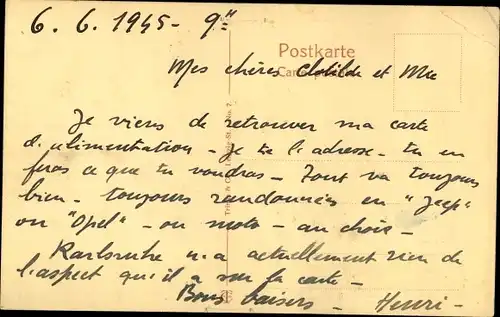 6. 6. 1945 - 9H
Postkarte
Mes chères Clotilde et Mie
Je viens de retrouver ma carte
d'alimentation - Je te l'adresse - tu en
feras ce que tu voudras - Tout va toujours
bien - toujours randonnées en "Jeep"
ou "Opel" - ou moto - au choix -
Karlsruhe n'a actuellement rien de
l'aspect qu'il a sur la carte -
Bons baisers - Henri -